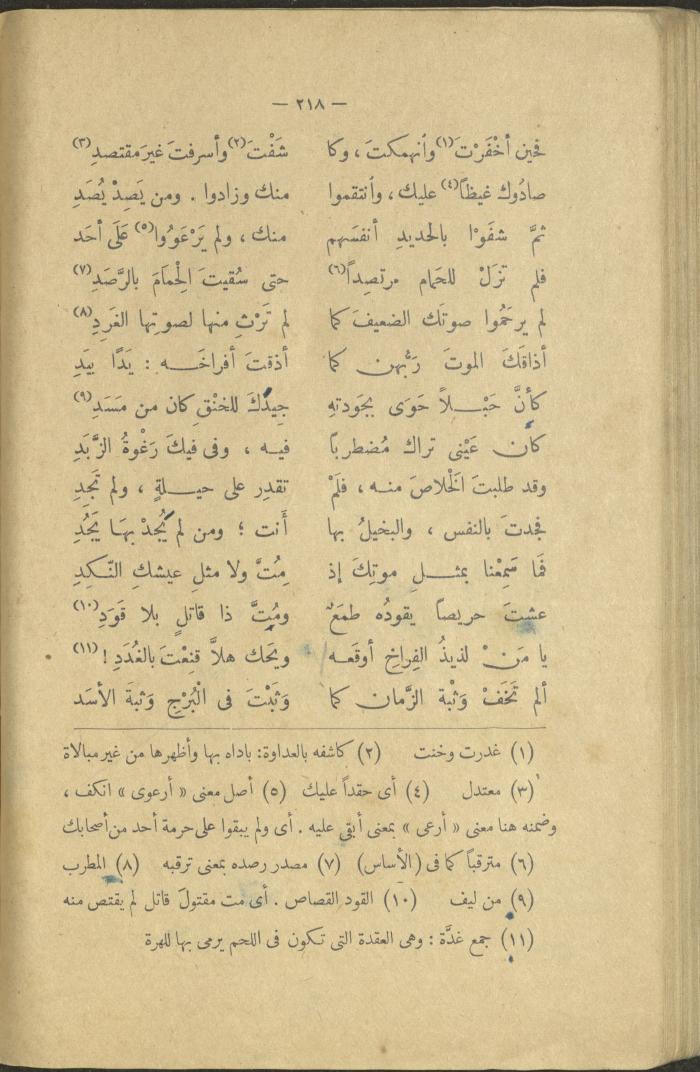 — ٢١٨ —
فحين أخْفَرْتَ(١) وٱنهمكتَ ، وكا شَفْتَ(٢) وأسرفتَ غيرَ مقتصدِ(٣)
صادُوك غيظاً(٤) عليك ، وٱنتقموا منك وزادوا . ومن يَصِدْ يُصَدِ
ثمَّ شفَوْا بالحديدِ أنفسَهم منك ، ولم يَرْعَوُوا(٥) عَلَى أحَد
فلم تزَلْ للحَمام مرتصِداً(٦) حتى سُقيتَ الْحِمَامَ بالرَّصَدِ(٧)
لم يرحَمُوا صوتَك الضعيفَ كما لم تَرْثِ منها لصوتِها الغَرِدِ(٨)
أذاقَكَ الموتَ رَبُّهن كما أذقتَ أفراخَـــه : يَدًا بيَدِ
كأنَّ حَبْـــلاً حَوَى بجَودتهِ جِيدَكَ للخنْقِ كان من مَسَدِ(٩)
كان عَيْنى تراك مُضطرباً فيـه ، وفى فيكَ رَغْوةُ الزَّبَدِ
وقد طلبتَ الْخلاصَ منـه ، فلَمْ تقدِر على حيـلةٍ ، ولم تَجِدِ
فجدتَ بالنفس ، والبخيلُ بها أنت ؛ ومن لم يُجدْ بهَا يَجُدِ
فمَا سَمِعْنا بمثـــلِ موتِكَ إذ مِتَّ ولا مثلِ عيشكِ النَّكِدِ
عشتَ حريصاً يقودُه طمَعٌ ومُتَّ ذا قاتلٍ بلا قَوَدِ(١٠)
يا مَنْ لذيذُ الفِراخِ أوقَعـه ويَحك هلاَّ قنِعْتَ بالغُدَدِ !(١١)
ألم تَخَفْ وَثْبة الزَّمان كما وَثَبْتَ فى الْبُرْجِ وَثبةَ الأسَد
(١) غدرت وخنت (٢) كاشفه بالعداوة: باداه بها وأظهرها من غير مبالاة
(٣) معتدل (٤) أى حقداً عليك (٥) أصل معنى « أرعوى » انكف ،
وضمنه هنا معنى « أرعى » بمعنى أبقى عليه . أى ولم يبقوا على حرمة أحد من أصحابك
(٦) مترقباً كما فى (الأساس) (٧) مصدر رصده بمعنى ترقبه (٨) المطرب
(٩) من ليف (١٠) القود القصاص . أى مت مقتولَ قاتل لم يقتص منه
(١١) جمع غدَّة : وهى العقدة التى تكون فى اللحم يرمى بها للهرة